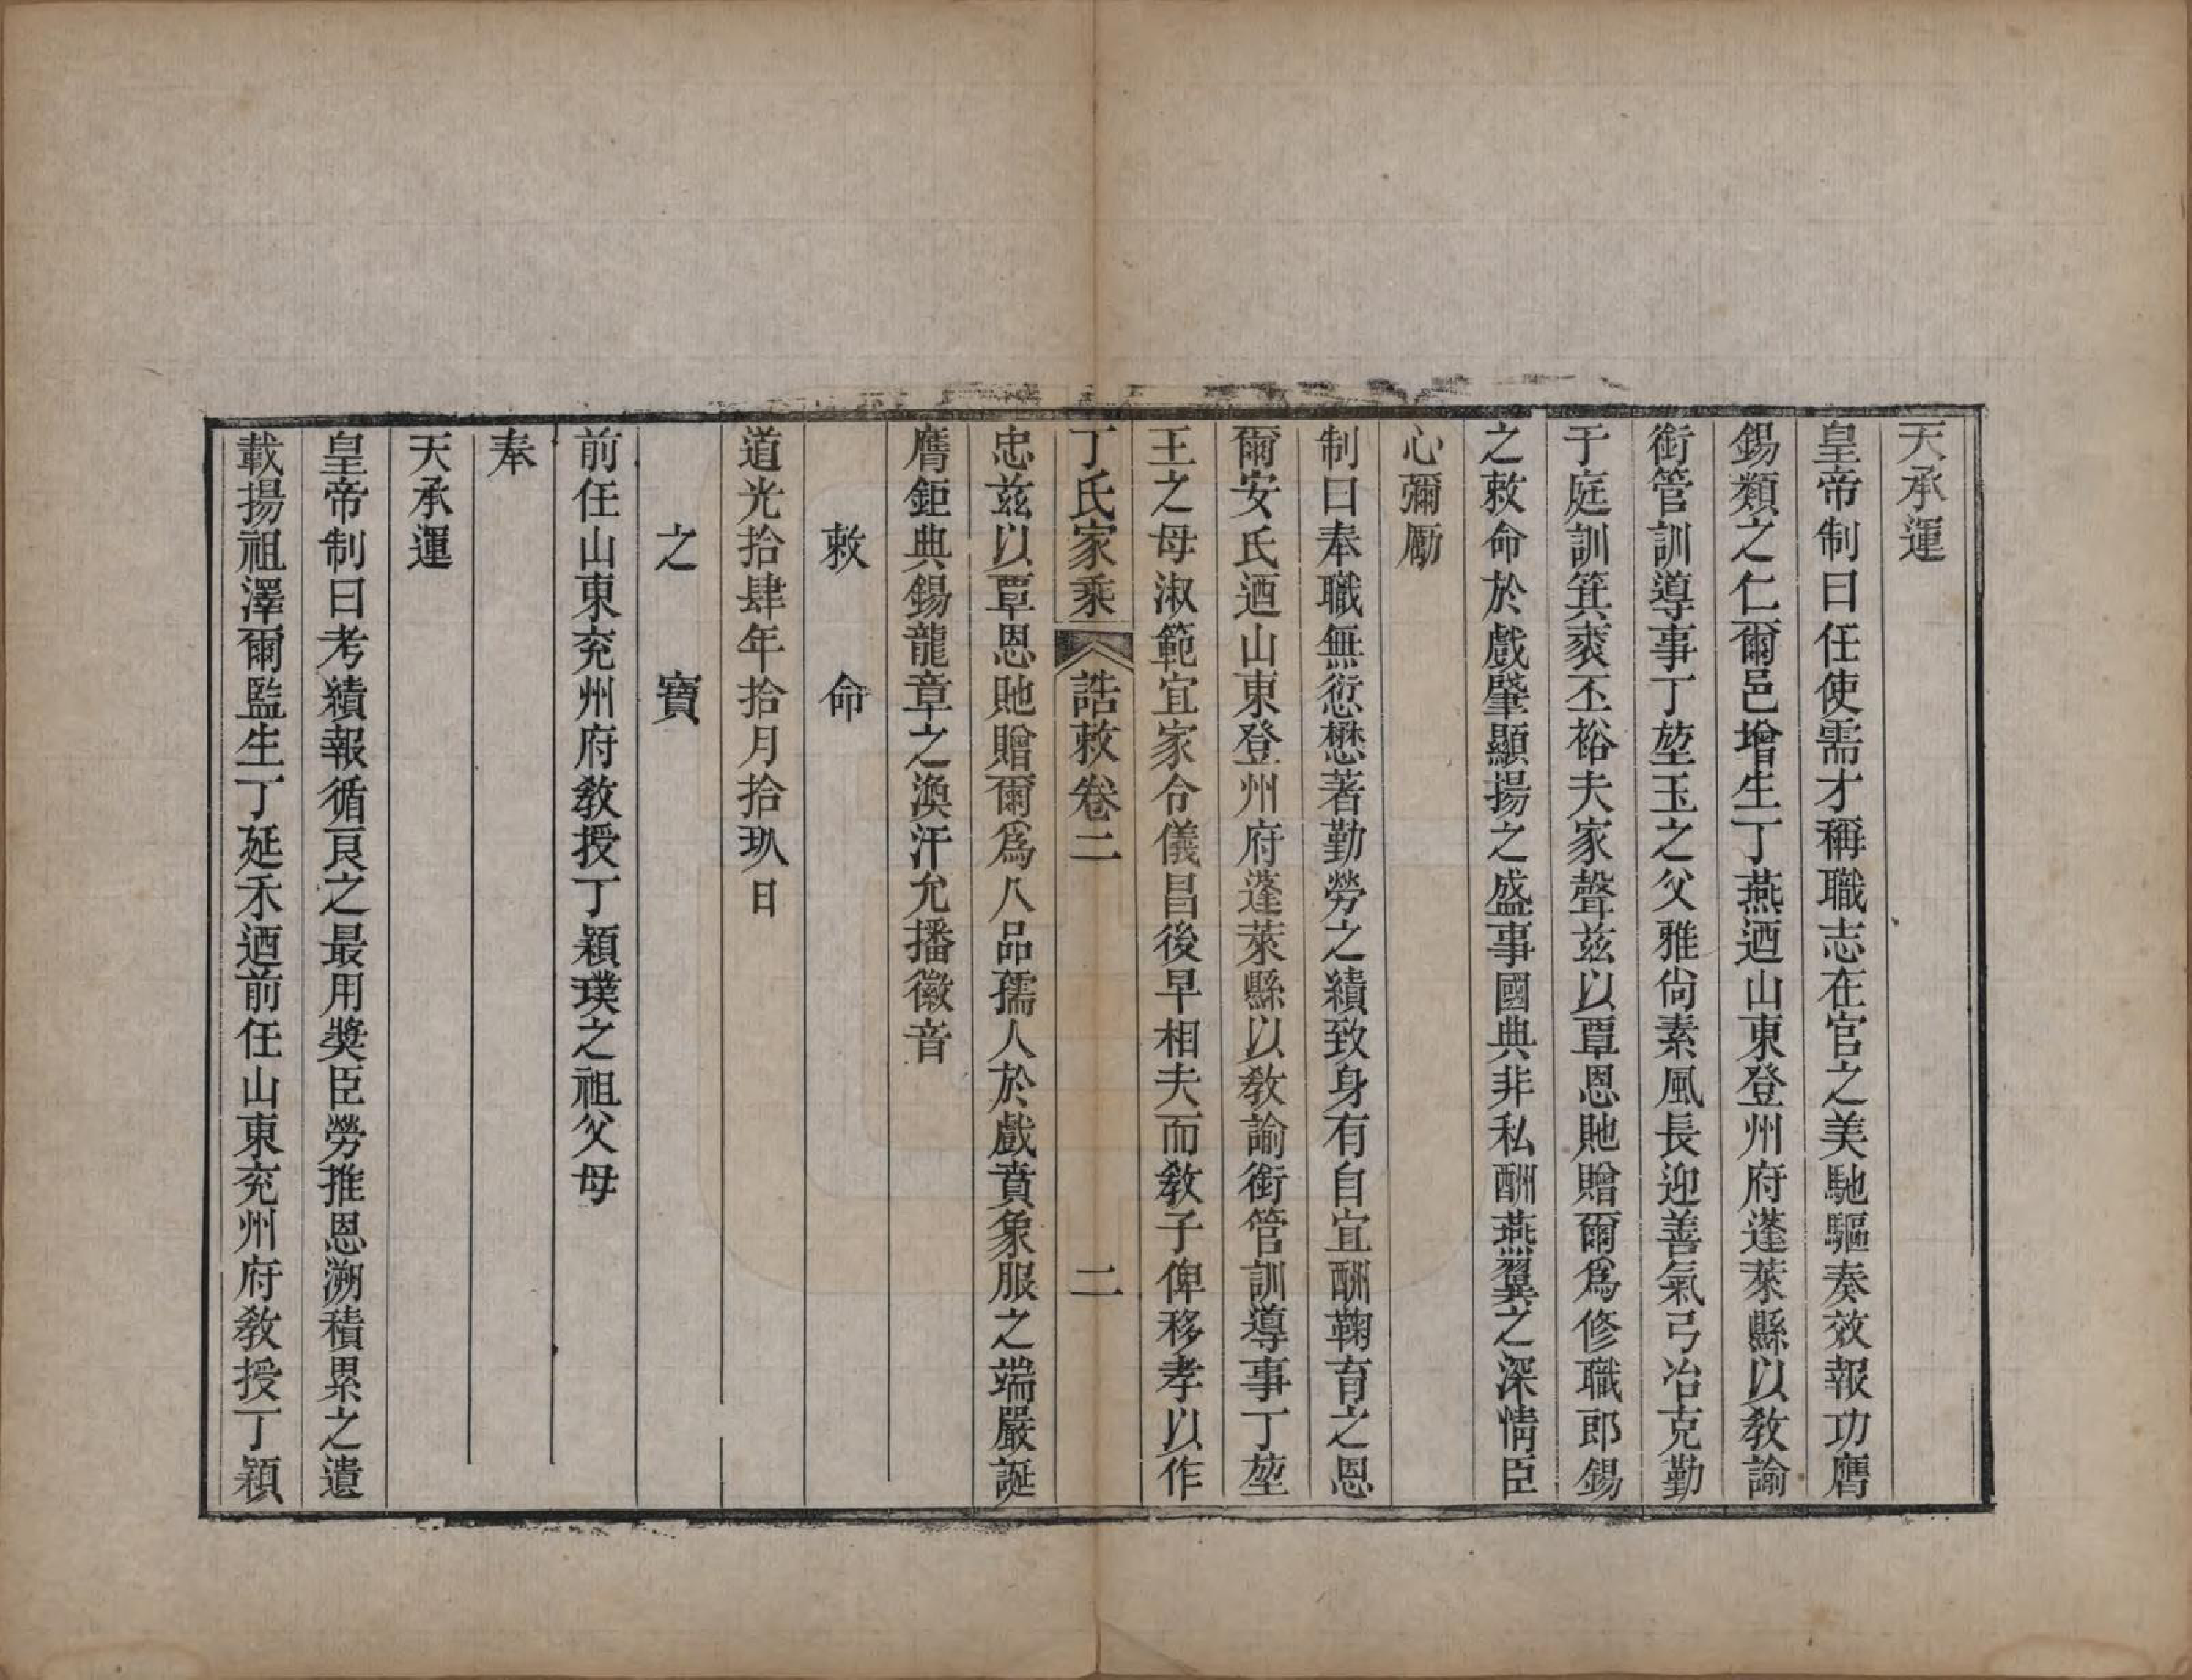 天承運
皇帝制曰任使需才稱職志在官之美馳驅奏效報功膺
錫類之仁爾邑增生丁燕迺山東登州府蓬萊縣以敎諭
銜管訓導事丁堃玉之父雅尙素風長迎善氣弓冶克勤
于庭訓箕裘丕裕夫家聲茲以覃恩貤贈爾爲修職郎錫
之敕命於戲肇顯揚之盛事國典非私酬燕翼之深情臣
心彌勵
制曰奉職無愆懋著勤勞之績致身有自宜酬鞠育之恩
爾安氏迺山東登州府蓬萊縣以敎諭銜管訓導事丁堃
王之母淑範宜家令儀昌後早相夫而敎子俾移孝以作
丁氏家乘 誥敕卷二 二
忠茲以覃恩貤贈爾爲八品孺人於戲賁象服之端嚴誕
膺鉅典錫龍章之渙汗允播徽音
敕命
道光拾肆年拾月拾玖日
之寶
前任山東兖州府敎授丁穎璞之祖父母
奉
天承運
皇帝制曰考績報循良之最用獎臣勞推恩溯積累之遺
載揚祖澤爾監生丁延禾迺前任山東兖州府敎授丁穎